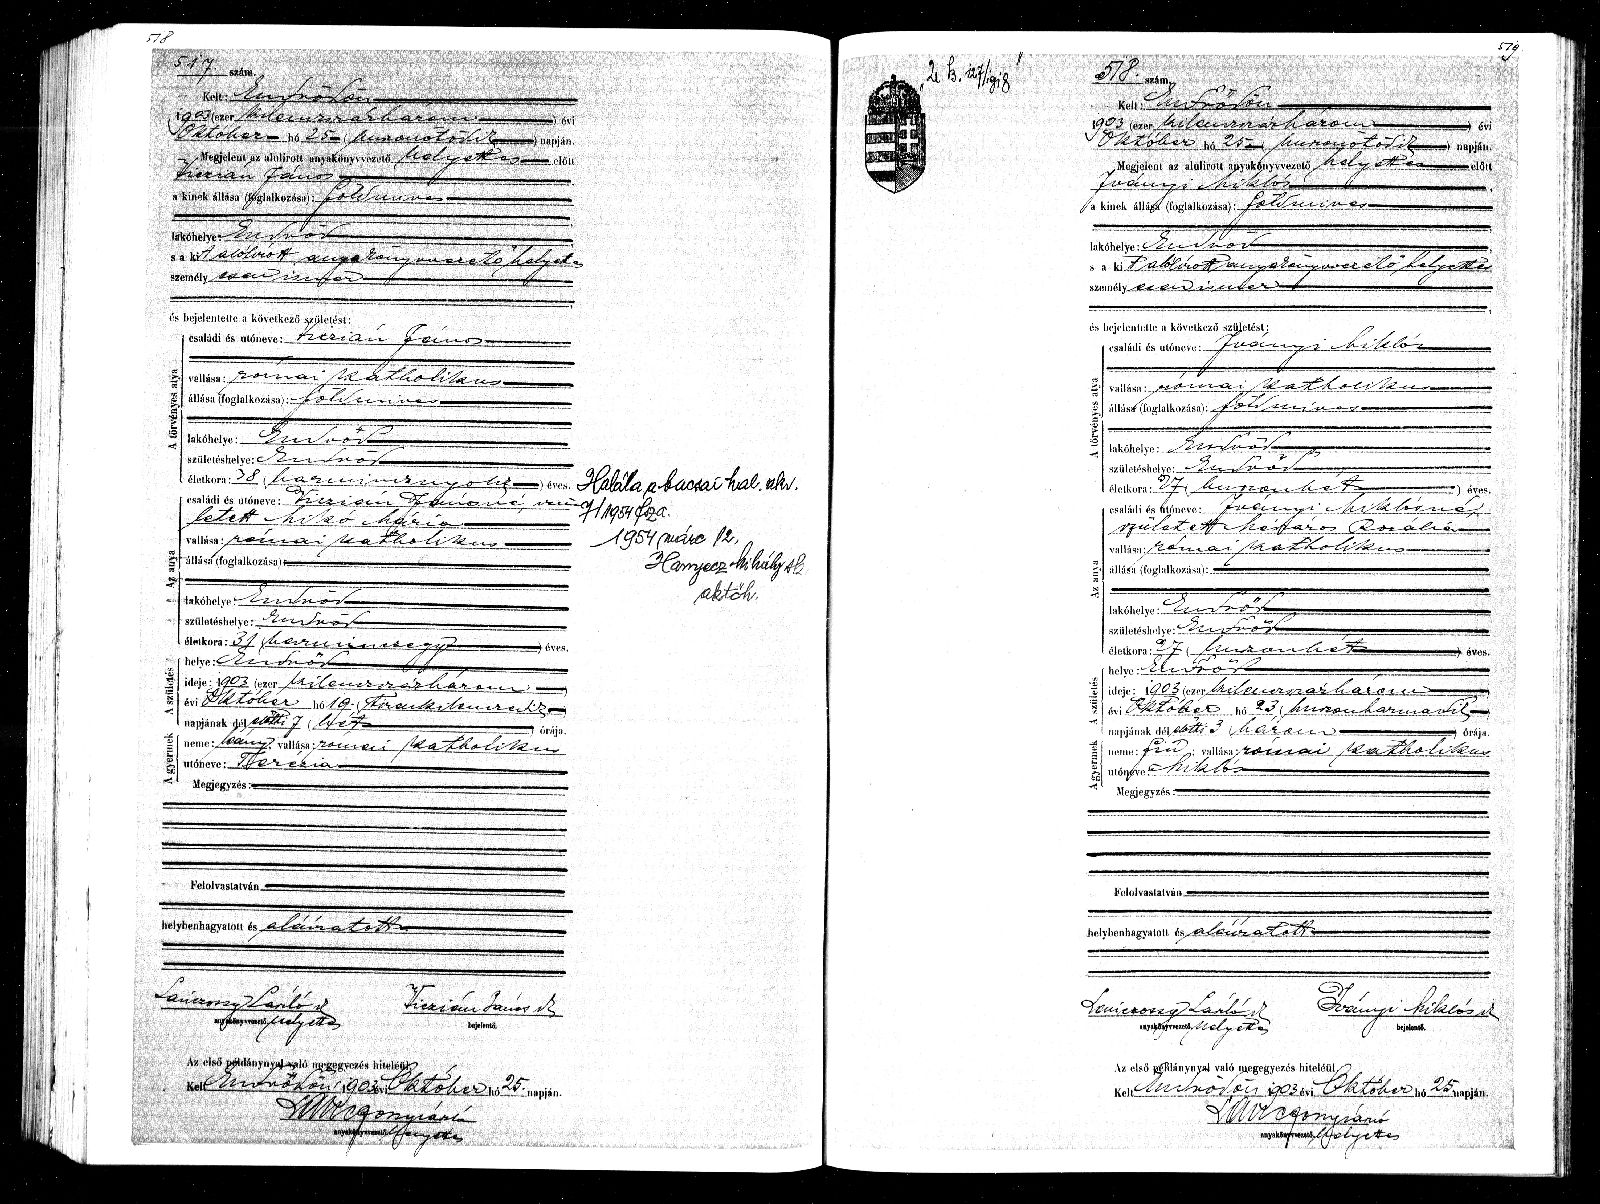 518
517 szám.
Kelt: Endrődön
1903 (ezer kilenczszázhárom) évi
Október hó 25 (huszonötödik) napján.
Megjelent az alulirott anyakönyvvezető helyettes előtt
Vizián János
a kinek állása (foglalkozása): földmives
lakóhelye: Endrőd
s a kit alólirott anyakönyvvezető helyettes
személyesen ismer
és bejelentette a következő születést:
A törvényes atya
családi és utóneve: Vizián János
vallása: római katholikus
állása (foglalkozása): földmives
lakóhelye: Endrőd
születéshelye: Endrőd
életkora: 38 (harmincznyolcz) éves.
Az anya
családi és utóneve: Vizián Jánosné, szü
letett Mikó Mária
vallása: római katholikus
állása (foglalkozása):
lakóhelye: Endrőd
születéshelye: Endrőd
életkora: 31 (harminczegy) éves.
A születés
helye: Endrőd
ideje: 1903 (ezer kilenczszázhárom)
évi Október hó 19 (tizenkilenczedik)
napjának dél előtti 7 (hét) órája.
A gyermek
neme: leány vallása: római katholikus
utóneve: Terézia
Megjegyzés:
Felolvastatván
helybenhagyatott és aláiratott
László
anyakönyvvezető helyettes
Vizián János
bejelentő.
Az első példánynyal való megegyezés hiteléül
Kelt Endrődön 1903 évi Október hó 25. napján.
anyakönyvvezető helyettes
Halála a bucsai hal. akv.
7/1954 fsza.
1954 márc 12.
Hanyecz Mihály sk
aktőh.
519
518. szám.
Kelt: Endrődön
1903 (ezer kilenczszázhárom) évi
Október hó 25 (huszonötödik) napján.
Megjelent az alulirott anyakönyvvezető helyettes előtt
Iványi Miklós
a kinek állása (foglalkozása): földmives
lakóhelye: Endrőd
s a kit alólirott anyakönyvvezető helyettes
személyesen ismer
és bejelentette a következő születést:
A törvényes atya
családi és utóneve: Iványi Miklós
vallása: római katholikus
állása (foglalkozása): földmives
lakóhelye: Endrőd
születéshelye: Endrőd
életkora: 27 (huszonhét) éves.
Az anya
családi és utóneve: Iványi Miklósné,
született Mészáros Rozália
vallása: római katholikus
állása (foglalkozása):
lakóhelye: Endrőd
születéshelye: Endrőd
életkora: 27 (huszonhét) éves.
A születés
helye: Endrőd
ideje: 1903 (ezer kilenczszázhárom)
évi Október hó 23 (huszonharmadik)
napjának dél előtti 3 (három) órája.
A gyermek
neme: fiú, vallása: római katholikus
utóneve: Miklós
Megjegyzés:
Felolvastatván
helybenhagyatott és aláiratott
László
anyakönyvvezető helyettes
Iványi Miklós
bejelentő.
Az első példánynyal való megegyezés hiteléül
Kelt Endrődön 1903 évi Október hó 25 napján.
anyakönyvvezető helyettes